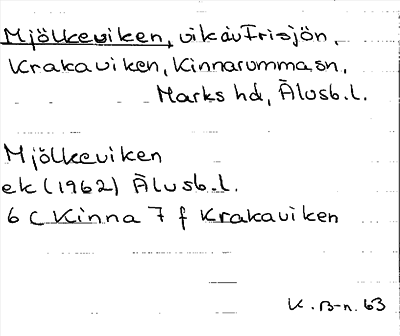 Mjölkeviken, vik av Frisjön,
Krakaviken, Kinnarumma sn,
Marks hd, Älvsb. l.
Mjölkeviken
ek (1962) Älvsb. l.
6 C Kinna 7 f Krakaviken
K. B-n. 63